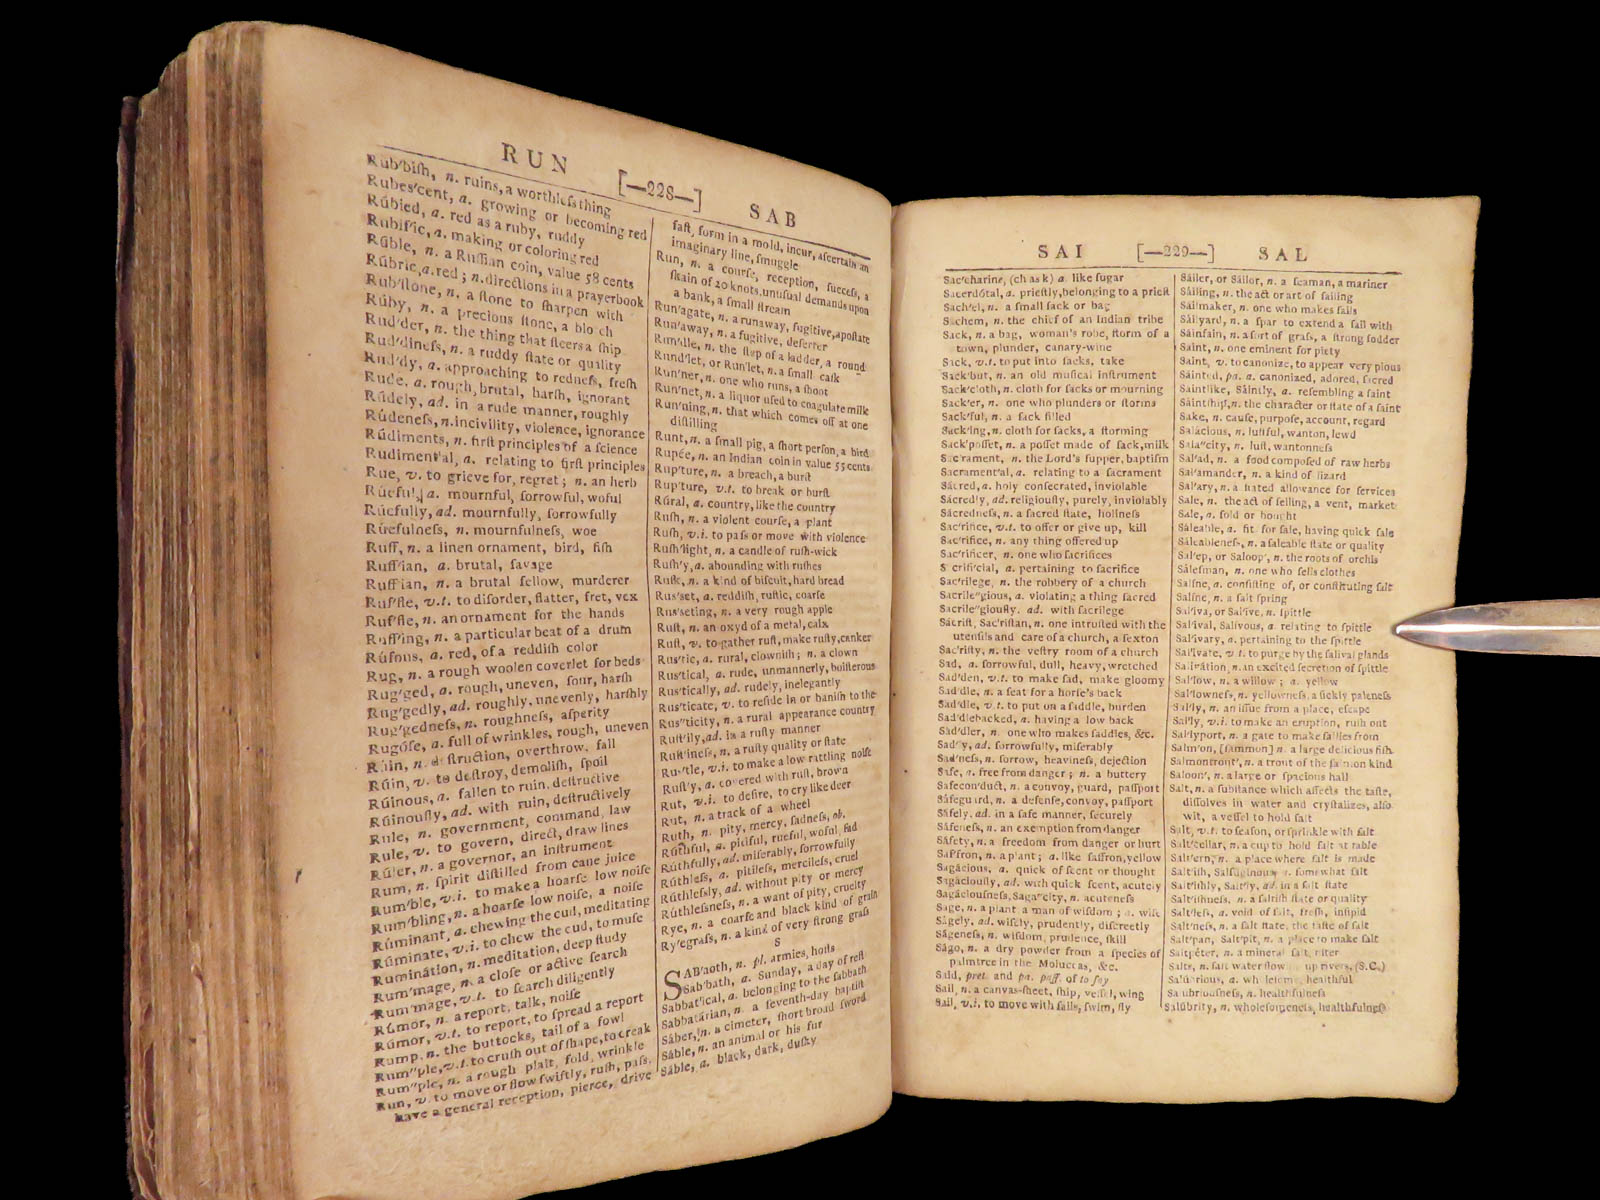 RUN [—228—] SAB
Rub'biſh, n. ruins, a worthleſs thing
Rubes'cent, a. growing or becoming red
Rúbied, a. red as a ruby, ruddy
Rubif'ic, a. making or coloring red
Rúble, n. a Ruſſian coin, value 58 cents
Rúbric, a. red; n. directions in a prayerbook
Rub'ſtone, n. a ſtone to ſharpen with
Rúby, n. a precious ſtone, a blo ch
Rud'der, n. the thing that ſteers a ſhip
Rud'dineſs, n. a ruddy ſtate or quality
Rud'dy, a. approaching to redneſs, freſh
Rude, a. rough, brutal, harſh, ignorant
Rúdely, ad. in a rude manner, roughly
Rúdeneſs, n. incivility, violence, ignorance
Rúdiments, n. firſt principles of a ſcience
Rudiment'al, a. relating to firſt principles
Rue, v. to grieve for, regret; n. an herb
Rúeful, a. mournful, ſorrowful, woful
Rúefully, ad. mournfully, ſorrowfully
Rúefulneſs, n. mournfulneſs, woe
Ruff, n. a linen ornament, bird, fiſh
Ruff'ian, a. brutal, ſavage
Ruff'ian, n. a brutal fellow, murderer
Ruf'fle, v.t. to diſorder, flatter, fret, vex
Ruf'fle, n. an ornament for the hands
Ruff'ing, n. a particular beat of a drum
Rúfous, a. red, of a reddiſh color
Rug, n. a rough woolen coverlet for beds
Rug'ged, a. rough, uneven, ſour, harſh
Rug'gedly, ad. roughly, unevenly, harſhly
Rug'gedneſs, n. roughneſs, aſperity
Rugóſe, a. full of wrinkles, rough, uneven
Rúin, n. deſtruction, overthrow, fall
Rúin, v. to deſtroy, demoliſh, ſpoil
Rúinous, a. fallen to ruin, deſtructive
Rúinouſly, ad. with ruin, deſtructively
Rule, n. government, command, law
Rule, v. to govern, direct, draw lines
Rúler, n. a governor, an inſtrument
Rum, n. ſpirit diſtilled from cane juice
Rum'ble, v.i. to make a hoarſe low noiſe
Rum'bling, n. a hoarſe low noiſe, a noiſe
Rúminant, a. chewing the cud, meditating
Rúminate, v.i. to chew the cud, to muſe
Ruminátion, n. meditation, deep ſtudy
Rum'mage, n. a cloſe or active ſearch
Rum'mage, v.t. to ſearch diligently
Rúmor, n. a report, talk, noiſe
Rúmor, v.t. to report, to ſpread a report
Rump, n. the buttocks, tail of a fowl
Rum"ple, v.t. to cruſh out of ſhape, to creak
Rum"ple, n. a rough plait, fold, wrinkle
Run, v. to move or flow ſwiftly, ruſh, paſs,
have a general reception, pierce, drive
faſt, form in a mold, incur, aſcertain an
imaginary line, ſmuggle
Run, n. a courſe, reception, ſucceſs, a
ſkain of 20 knots, unuſual demands upon
a bank, a ſmall ſtream
Run'agate, n. a runaway, fugitive, apoſtate
Run'away, n. a fugitive, deſerter
Run'dle, n. the ſtep of a ladder, a round
Rund'let, or Run'let, n. a ſmall caſk
Run'ner, n. one who runs, a ſhoot
Run'net, n. a liquor uſed to coagulate milk
Run'ning, n. that which comes off at one
diſtilling
Runt, n. a ſmall pig, a ſhort perſon, a bird
Rupée, n. an Indian coin in value 55 cents
Rup'ture, n. a breach, a burſt
Rup'ture, v.t. to break or burſt
Rúral, a. country, like the country
Ruſh, n. a violent courſe, a plant
Ruſh, v.i. to paſs or move with violence
Ruſh'light, n. a candle of ruſh-wick
Ruſh'y, a. abounding with ruſhes
Ruſk, n. a kind of biſcuit, hard bread
Rus'set, a. reddiſh, ruſtic, coarſe
Rus'seting, n. a very rough apple
Ruſt, n. an oxyd of a metal, calx
Ruſt, v. to gather ruſt, make ruſty, canker
Rus'tic, a. rural, clowniſh; n. a clown
Rus'tical, a. rude, unmannerly, boiſterous
Rus'tically, ad. rudely, inelegantly
Rus'ticate, v. to reſide in or baniſh to the
Rus"ticity, n. a rural appearance country
Ruſt'ily, ad. in a ruſty manner
Ruſt'ineſs, n. a ruſty quality or ſtate
Ru"tle, v.i. to make a low rattling noiſe
Ruſt'y, a. covered with ruſt, brown
Rut, v.i. to deſire, to cry like deer
Rut, n. a track of a wheel
Ruth, n. pity, mercy, ſadneſs, ob.
Rúthful, a. pitiful, rueful, woful, ſad
Rúthfully, ad. miſerably, ſorrowfully
Rúthleſs, a. pitileſs, mercileſs, cruel
Rúthleſsly, ad. without pity or mercy
Rúthleſsneſs, n. a want of pity, cruelty
Rye, n. a coarſe and black kind of grain
Ry'egraſs, n. a kind of very ſtrong graſs
S
SAB'aoth, n. pl. armies, hoſts
Sab'bath, n. Sunday, a day of reſt
Sabbat'ical, a. belonging to the ſabbath
Sabbatárian, n. a ſeventh-day baptiſt
Sáber, n. a cimeter, ſhort broad ſword
Sáble, n. an animal or his fur
Sáble, a. black, dark, duſky
SAI [—229—] SAL
Sac'charine, (ch as k) a. like ſugar
Sacerdótal, a. prieſtly, belonging to a prieſt
Sach'el, n. a ſmall ſack or bag
Sáchem, n. the chief of an Indian tribe
Sack, n. a bag, woman's robe, ſtorm of a
town, plunder, canary-wine
Sack, v.t. to put into ſacks, take
Sack'but, n. an old muſical inſtrument
Sack'cloth, n. cloth for ſacks or mourning
Sack'er, n. one who plunders or ſtorms
Sack'ful, n. a ſack filled
Sack'ing, n. cloth for ſacks, a ſtorming
Sack'poſſet, n. a poſſet made of ſack, milk
Sac'rament, n. the Lord's ſupper, baptiſm
Sacrament'al, a. relating to a ſacrament
Sácred, a. holy conſecrated, inviolable
Sácredly, ad. religiouſly, purely, inviolably
Sácredneſs, n. a ſacred ſtate, holineſs
Sac'rifice, v.t. to offer or give up, kill
Sac'rifice, n. any thing offered up
Sac'rificer, n. one who ſacrifices
S crificial, a. pertaining to ſacrifice
Sac'rilege, n. the robbery of a church
Sacrile"gious, a. violating a thing ſacred
Sacrile"giouſly, ad. with ſacrilege
Sácriſt, Sac'riſtan, n. one intruſted with the
utenſils and care of a church, a ſexton
Sac'riſty, n. the veſtry room of a church
Sad, a. ſorrowful, dull, heavy, wretched
Sad'den, v.t. to make ſad, make gloomy
Sad'dle, n. a ſeat for a horſe's back
Sad'dle, v.t. to put on a ſaddle, burden
Sad'dlebacked, a. having a low back
Sad'dler, n. one who makes ſaddles, &c.
Sad'ly, ad. ſorrowfully, miſerably
Sad'neſs, n. ſorrow, heavineſs, dejection
Safe, a. free from danger; n. a buttery
Safecon'duct, n. a convoy, guard, paſſport
Sáfeguard, n. a defenſe, convoy, paſſport
Sáfely, ad. in a ſafe manner, ſecurely
Sáfeneſs, n. an exemption from danger
Sáfety, n. a freedom from danger or hurt
Saf'fron, n. a plant; a. like ſaffron, yellow
Sagácious, a. quick of ſcent or thought
Sagáciouſly, ad. with quick ſcent, acutely
Sagáciouſneſs, Saga"city, n. acuteneſs
Sage, n. a plant a man of wiſdom; a. wiſe
Ságely, ad. wiſely, prudently, diſcreetly
Ságeneſs, n. wiſdom, prudence, ſkill
Ságo, n. a dry powder from a ſpecies of
palmtree in the Moluccas, &c.
Said, pret. and pa. paſſ. of to ſay
Sail, n. a canvas-ſheet, ſhip, veſſel, wing
Sail, v.i. to move with ſails, ſwim, fly
Sáiler, or Sáilor, n. a ſeaman, a mariner
Sáiling, n. the act or art of ſailing
Sáilmaker, n. one who makes ſails
Sáilyard, n. a ſpar to extend a ſail with
Sáinfain, n. a ſort of graſs, a ſtrong fodder
Saint, n. one eminent for piety
Saint, v. to canonize, to appear very pious
Sáinted, pa. a. canonized, adored, ſacred
Sáintlike, Sáintly, a. reſembling a ſaint
Sáintſhip, n. the character or ſtate of a ſaint
Sake, n. cauſe, purpoſe, account, regard
Salácious, n. luſtful, wanton, lewd
Sala"city, n. luſt, wantonneſs
Sal'ad, n. a food compoſed of raw herbs
Sal'amander, n. a kind of lizard
Sal'ary, n. a ſtated allowance for ſervices
Sale, n. the act of ſelling, a vent, market
Sale, a. ſold or bought
Sáleable, a. fit for ſale, having quick ſale
Sáleableneſs, n. a ſaleable ſtate or quality
Sal'ep, or Saloop', n. the roots of orchis
Sáleſman, n. one who ſells clothes
Saline, a. conſiſting of, or conſtituting ſalt
Saline, n. a ſalt ſpring
Sal'iva, or Sal'ive, n. ſpittle
Sal'ival, Salívous, a. relating to ſpittle
Sal'ivary, a. pertaining to the ſpittle
Sal'ivate, v.t. to purge by the ſalival glands
Salivátion, n. an excited ſecretion of ſpittle
Sal'low, n. a willow; a. yellow
Sal'lowneſs, n. yellowneſs, a ſickly paleneſs
Sal'ly, n. an iſſue from a place, eſcape
Sal'ly, v.i. to make an eruption, ruſh out
Sal'lyport, n. a gate to make ſallies from
Salm'on, [ſammon] n. a large delicious fiſh
Salmontrout', n. a trout of the ſalmon kind
Saloon', n. a large or ſpacious hall
Salt, n. a ſubſtance which affects the taſte,
diſſolves in water and cryſtalizes, alſo
wit, a veſſel to hold ſalt
Salt, v.t. to ſeaſon, or ſprinkle with ſalt
Salt'cellar, n. a cup to hold ſalt at table
Salt'ern, n. a place where ſalt is made
Salt'iſh, Salſúginous, a. ſomewhat ſalt
Salt'iſhly, Salt'ly, ad. in a ſalt ſtate
Salt'iſhneſs, n. a ſaltiſh ſtate or quality
Salt'leſs, a. void of ſalt, freſh, inſipid
Salt'neſs, n. a ſalt ſtate, the taſte of ſalt
Salt'pan, Salt'pit, n. a place to make ſalt
Saltpéter, n. a mineral ſalt, niter
Salts, n. ſalt water flow up rivers, (S.C.)
Salúbrious, a. wholeſome, healthful
Salúbriouſneſs, n. healthfulneſs
Salúbrity, n. wholeſomeneſs, healthfulneſs